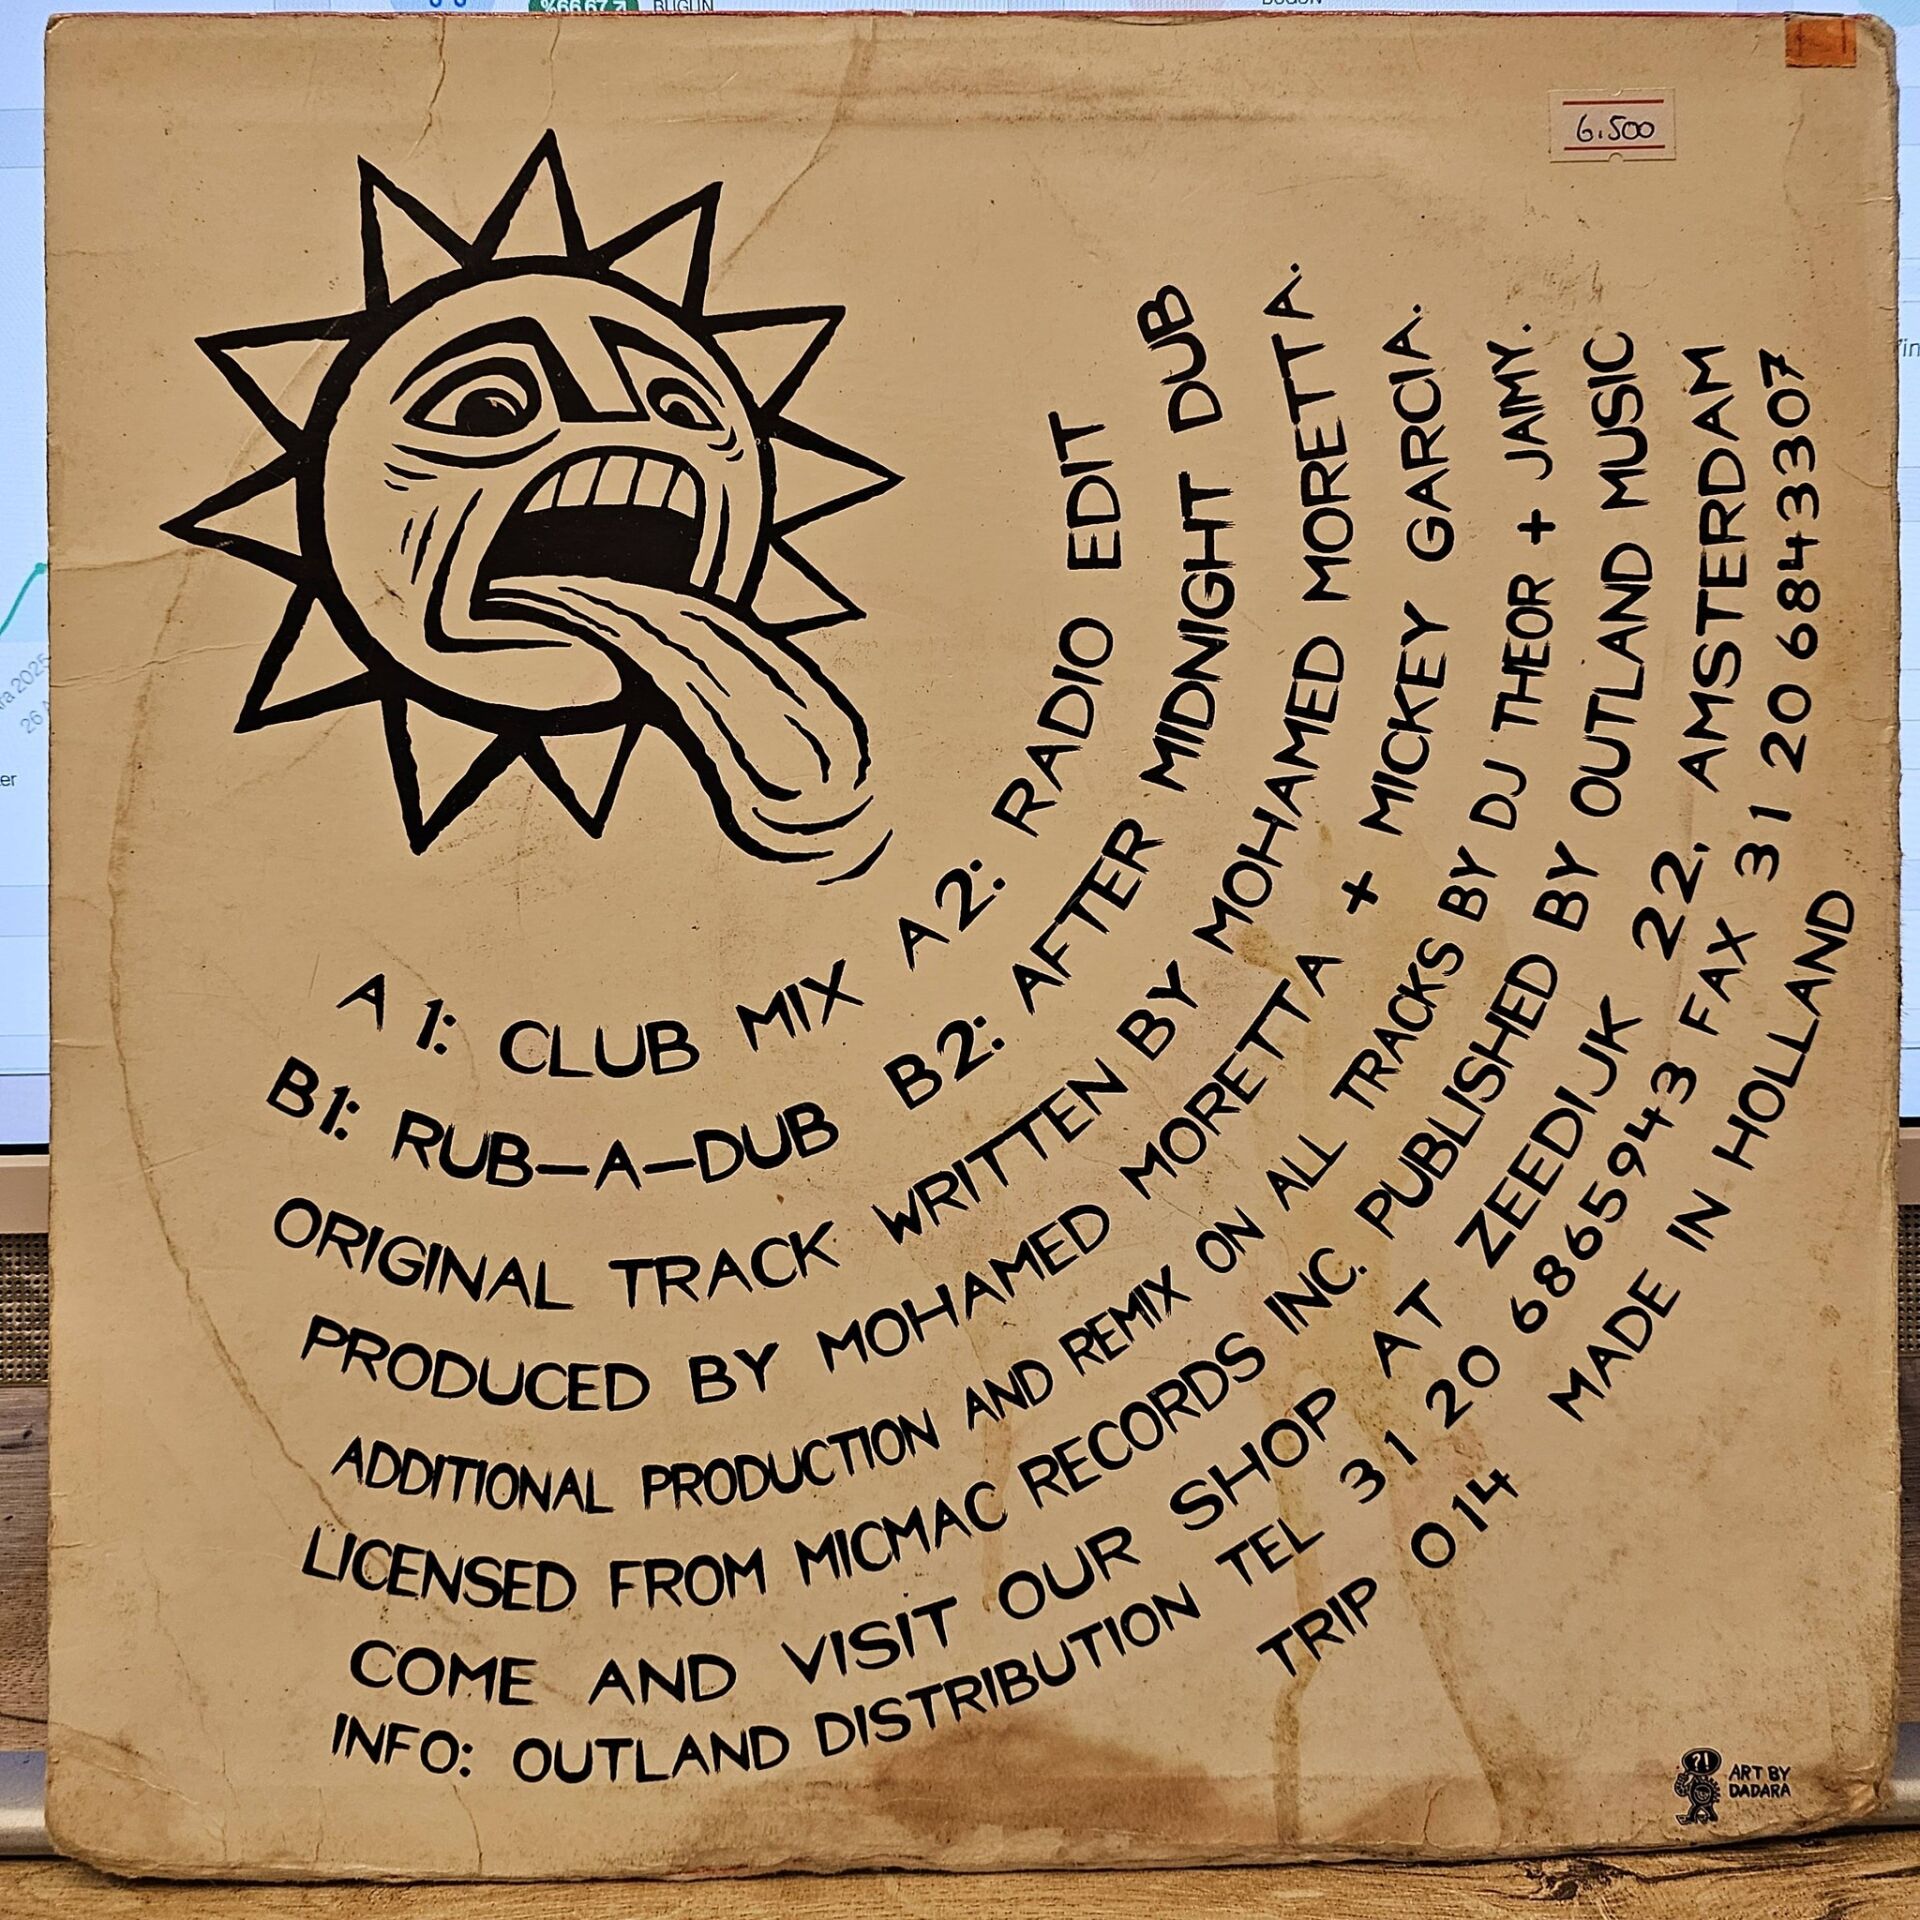 %66,67
BUGÜN
6.500
A1: CLUB MIX A2: RADIO EDIT
B1: RUB-A-DUB B2: AFTER MIDNIGHT DUB
ORIGINAL TRACK WRITTEN BY MOHAMED MORETTA.
PRODUCED BY MOHAMED MORETTA + MICKEY GARCIA.
ADDITIONAL PRODUCTION AND REMIX ON ALL TRACKS BY DJ THEOR + JAIMY.
LICENSED FROM MICMAC RECORDS INC. PUBLISHED BY OUTLAND MUSIC
COME AND VISIT OUR SHOP AT ZEEDIJK 22, AMSTERDAM
INFO: OUTLAND DISTRIBUTION TEL 31 20 6865943 FAX 31 20 6843307
TRIP 014 MADE IN HOLLAND
?!
ART BY
DADARA